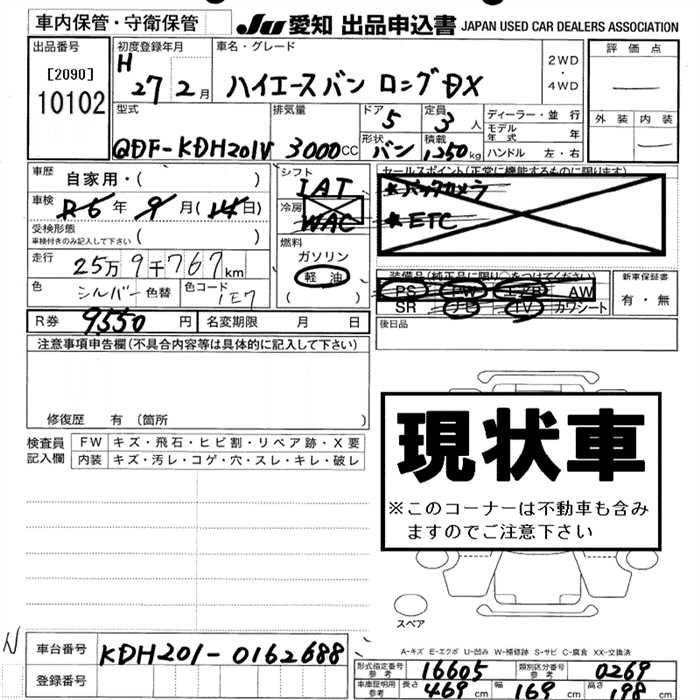 車内保管・守衛保管 JU 愛知 出品申込書 JAPAN USED CAR DEALERS ASSOCIATION
出品番号 [2090] 10102
初度登録年月 H 27 2月
車名・グレード ハイエースバン ロングDX
2WD・4WD
評価点 —
外装 内装 —
型式 QDF-KDH201V
排気量 3000cc
ドア 5 定員 3人
形状 バン 積載 1,250kg
ディーラー・並行
モデル年式 年
ハンドル 左・右
車歴 自家用・( )
車検 R6年9月(14日)
受検形態 車検付きのみ記入して下さい ( )
走行 25万9千767km
色 シルバー 色替 色コード 1E7
シフト IAT
冷房 WAC
燃料 ガソリン 軽油 ( )
セールスポイント(正常に機能するものに限ります)
*バックカメラ
*ETC
装備品(純正品に限り○をつけてください)
PS PW エアB AW
SR ナビ TV カワシート
新車保証書 有・無
R券 9550円 名変期限 月 日
後日品
注意事項申告欄(不具合内容等は具体的に記入して下さい)
修復歴 有 (箇所 )
検査員記入欄 FW キズ・飛石・ヒビ割・リペア跡・X要
内装 キズ・汚レ・コゲ・穴・スレ・キレ・破レ
現状車
※このコーナーは不動車も含み
ますのでご注意下さい
スペア
A-キズ E-エクボ U-凹み W-補修跡 S-サビ C-腐食 XX-交換済
N
車台番号 KDH201-0162688
登録番号
形式指定番号 参考 16605 類別区分番号 参考 0269
車庫証明用 参考 長さ 469cm 幅 169cm 高さ 198cm